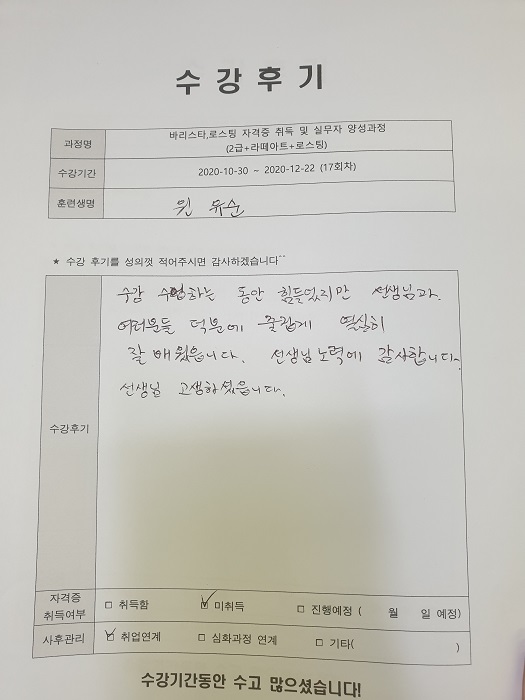 수강후기
과정명
바리스타,로스팅 자격증 취득 및 실무자 양성과정
(2급+라떼아트+로스팅)
수강기간
2020-10-30 ~ 2020-12-22 (17회차)
훈련생명
원 유순
★ 수강 후기를 성의껏 적어주시면 감사하겠습니다^^
수강후기
수강 수업하는 동안 힘들었지만 선생님과.
여러분들 덕분에 즐겁게 열심히
잘 배웠읍니다. 선생님노력에 감사합니다.
선생님 고생하셨읍니다.
자격증
취득여부
□ 취득함 ☑ 미취득 □ 진행예정 ( 월 일 예정)
사후관리
☑ 취업연계 □ 심화과정 연계 □ 기타( )
수강기간동안 수고 많으셨습니다!